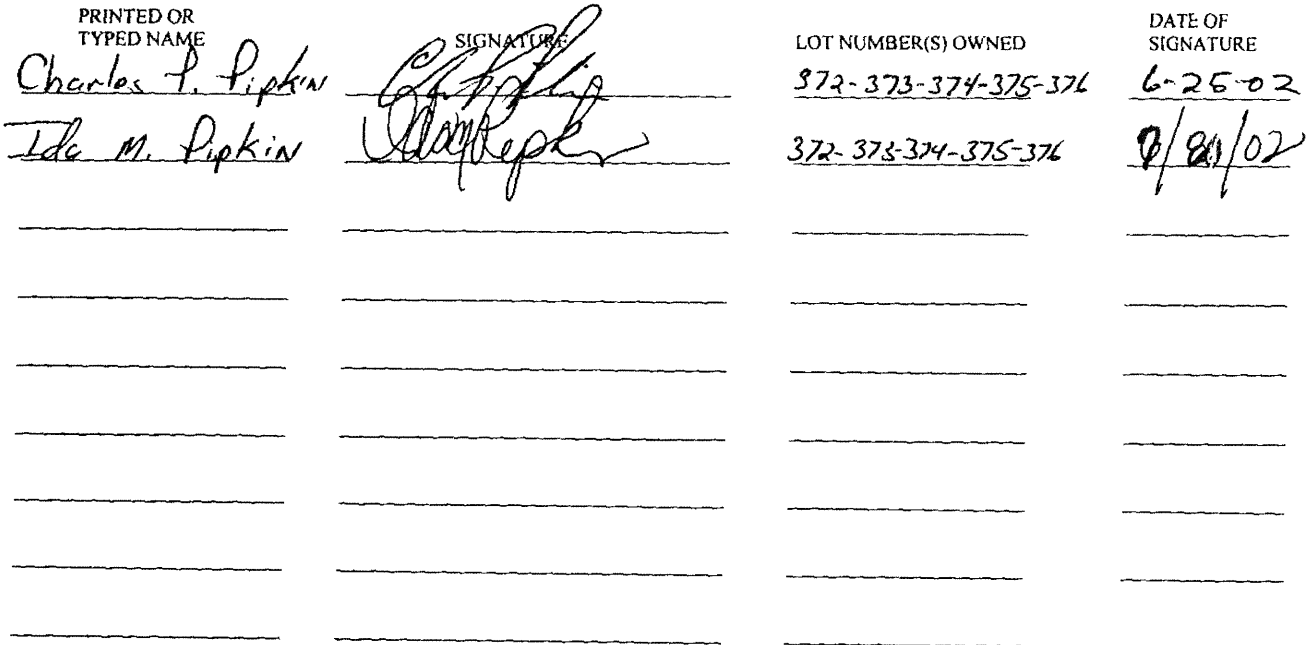 PRINTED OR
TYPED NAME SIGNATURE LOT NUMBER(S) OWNED DATE OF
SIGNATURE
Charles P. Pipkin 372-373-374-375-376 6-25-02
Ida M. Pipkin 372-373-374-375-376